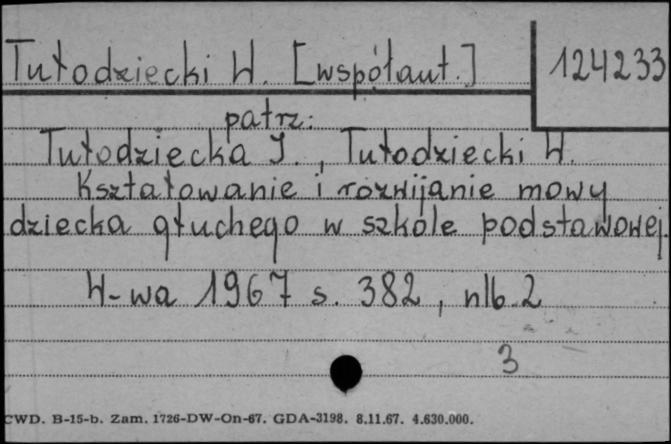 Tułodziecki W. [współaut.] 124233
patrz:
Tułodziecka J., Tułodziecki W.
Kształtowanie i rozwijanie mowy
dziecka głuchego w szkole podstawowej.
W-wa 1967 s. 382, nlb. 2
3
CWD. B-15-b. Zam. 1726-DW-On-67. GDA-3198. 8.11.67. 4.630.000.